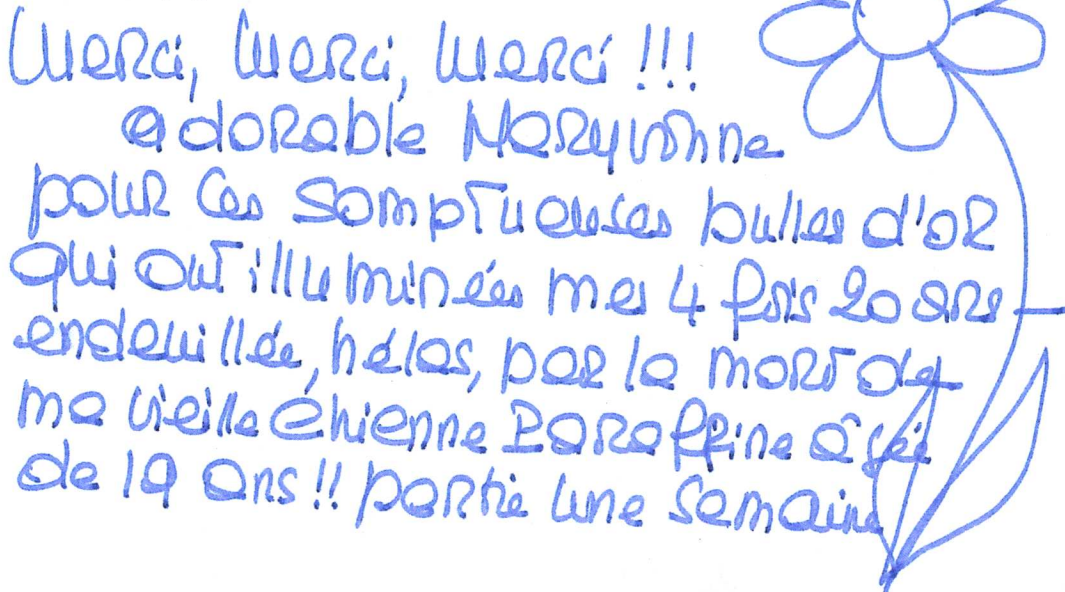 Merci, Merci, Merci !!!
adorable Maryvonne
pour ces somptueuses bulles d'or
qui ont illuminées mes 4 fois 20 ans -
endeuillée, hélas, par la mort de
ma vieille chienne Paraffine âgée
de 19 ans !! partie une semaine